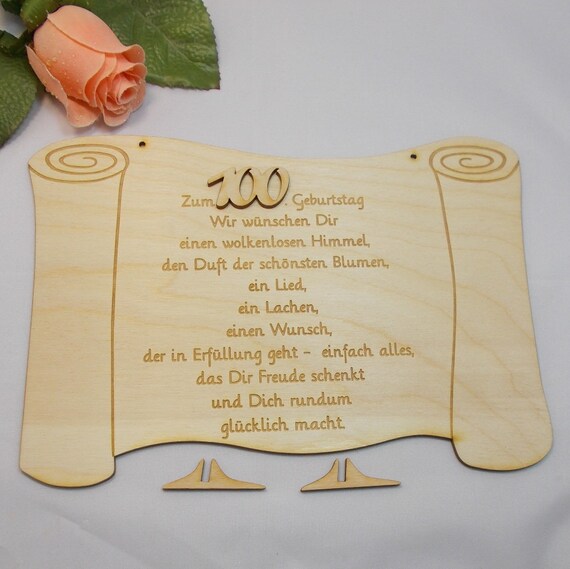 Zum 100. Geburtstag
Wir wünschen Dir
einen wolkenlosen Himmel,
den Duft der schönsten Blumen,
ein Lied,
ein Lachen,
einen Wunsch,
der in Erfüllung geht - einfach alles,
das Dir Freude schenkt
und Dich rundum
glücklich macht.